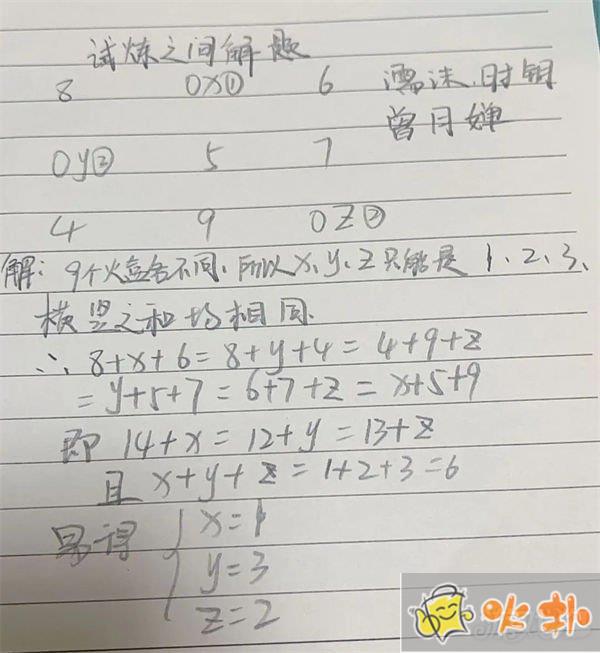 试炼之间解题
8 0X① 6 濡沫、时钥
曾月婵
0y② 5 7
4 9 0Z②
解:9个火盒各不同,所以X、Y、Z只能是1、2、3、
横竖之和均相同.
∴ 8+x+6=8+y+4=4+9+z
=y+5+7=6+7+z=x+5+9
即 14+x=12+y=13+z
且 x+y+z=1+2+3=6
易得 x=1
y=3
z=2
火卦